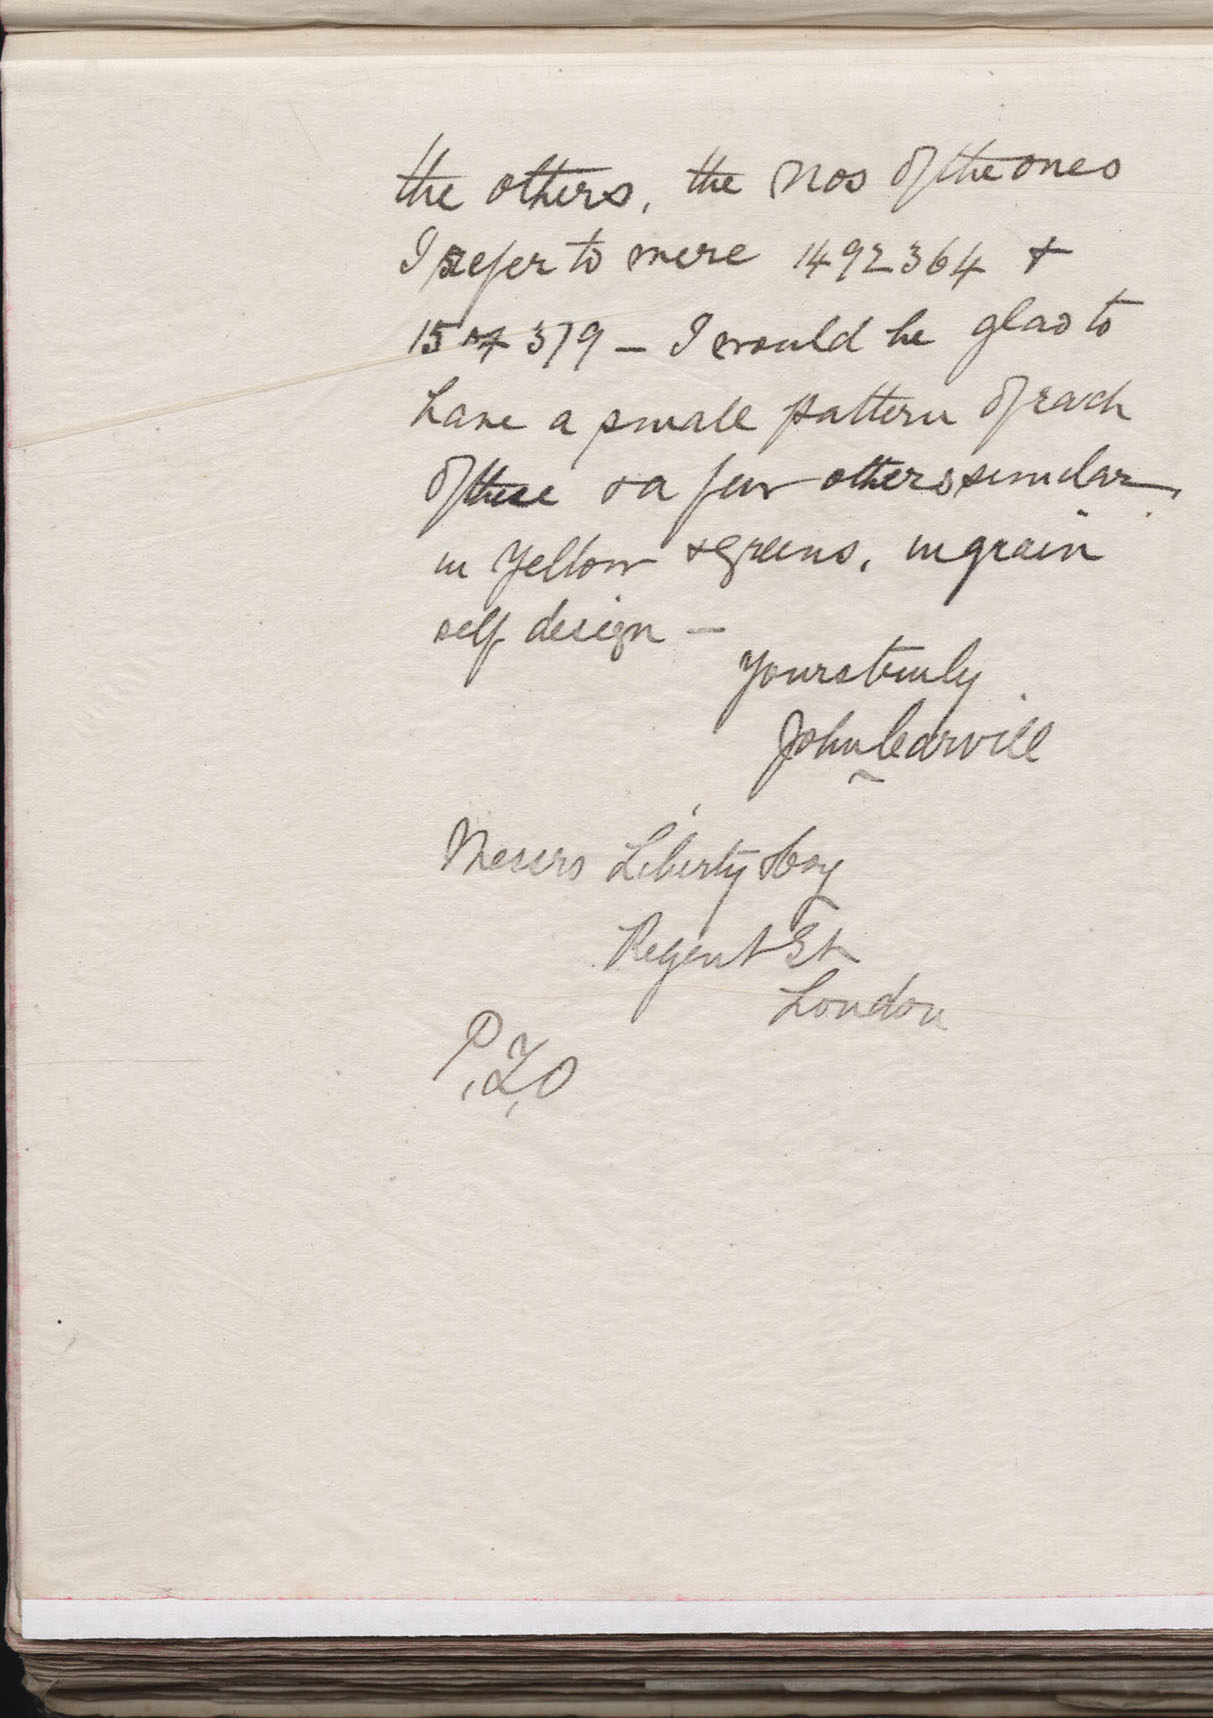 the others, the Nos of the ones
I refer to were 1492364 &
379 – I would be glad to
have a small pattern of each
of these & a few others similar
in Yellow & Greens, in grain
self design –
Yours truly
John Carvill
Messrs Liberty & Coy
Regent St
London
P.T.O